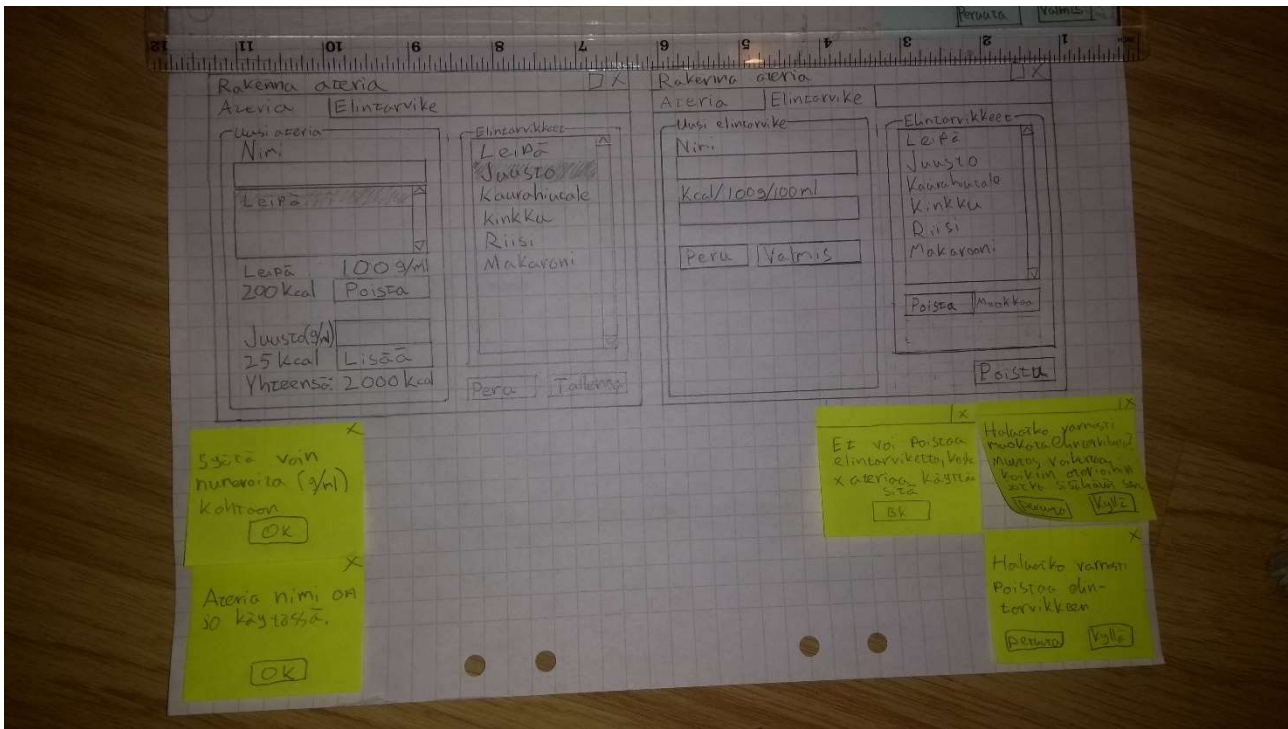 Peruuta Valmis
12 11 10 9 8 7 6 5 4 3 2 1
Rakenna ateria X
Ateria Elintarvike
Uusi ateria
Nimi
Leipä
Leipä 100 g/ml
200 kcal Poista
Juusto(g/ml)
25 kcal Lisää
Yhteensä: 2000 kcal
Elintarvikkeet
Leipä
Juusto
Kaurahiutale
Kinkku
Riisi
Makaroni
Peru Tallenna
Rakenna ateria X
Ateria Elintarvike
Uusi elintarvike
Nimi
Kcal/100g/100ml
Peru Valmis
Elintarvikkeet
Leipä
Juusto
Kaurahiutale
Kinkku
Riisi
Makarooni
Poista Muokkaa
Poistu
X
Syötä vain
numeroita (g/ml)
kohtaan
OK
X
Ateria nimi on
jo käytössä.
OK
X
Et voi poistaa
elintarviketta, koska
x ateriaa käyttää
sitä
OK
X
Haluatko varmasti
muokata elintarviketta?
Muutos vaikuttaa
kaikkiin aterioihin
jotka sisältävät sen
Peruuta Kyllä
X
Haluatko varmasti
poistaa elin-
tarvikkeen
peruuta Kyllä